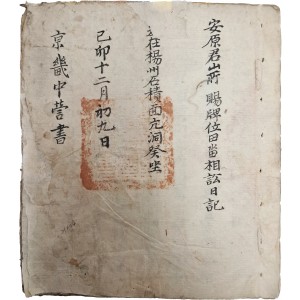 安原君山所 賜牌位田畓相訟日記
在楊州石積面亢洞癸坐
己卯十二月初九日
京畿中營書